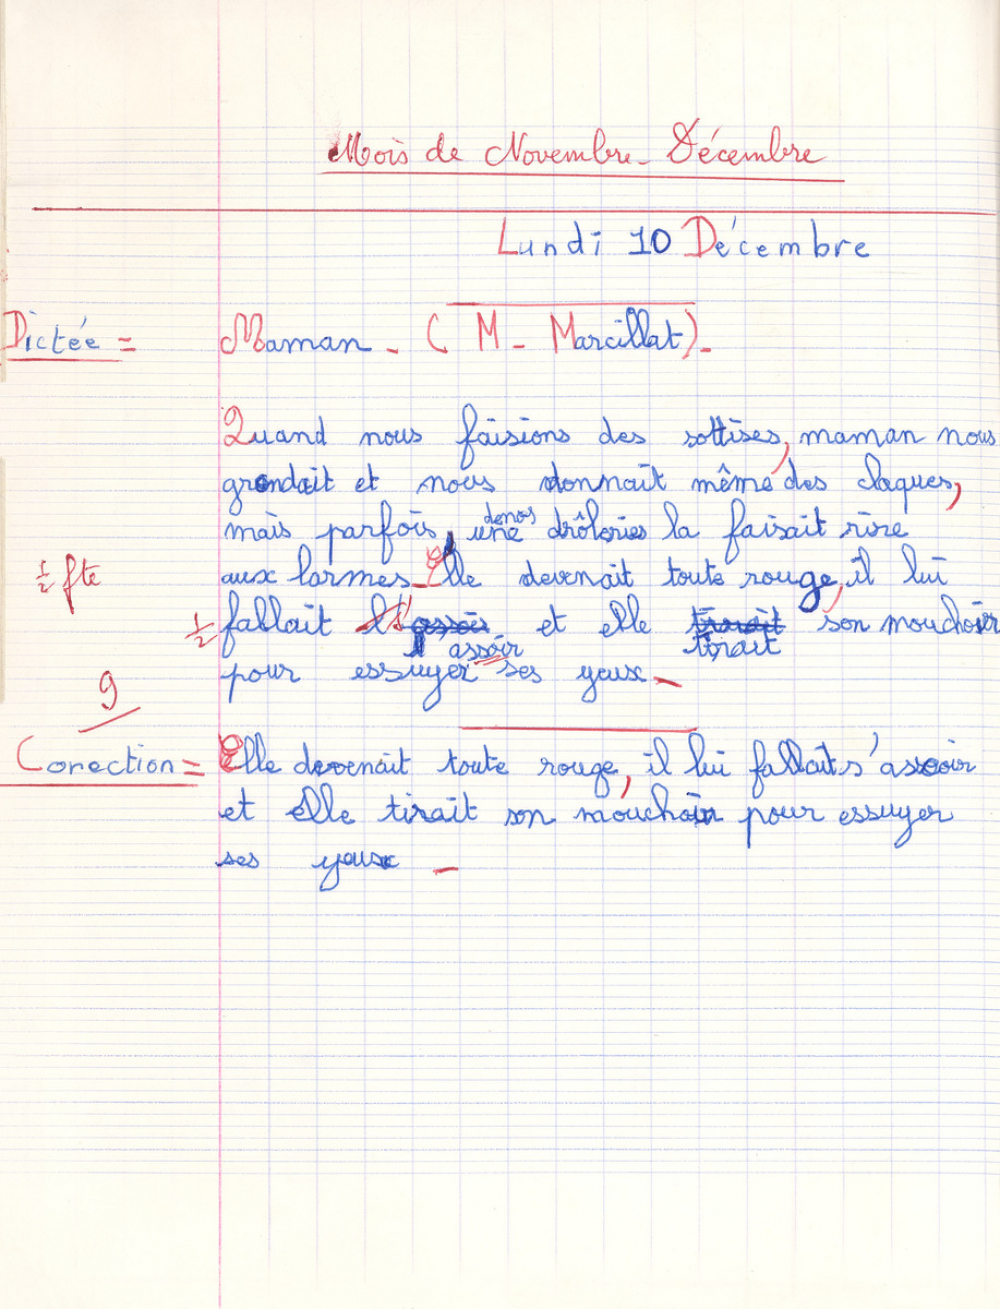 Mois de Novembre - Décembre
Lundi 10 Décembre
Dictée = Maman - ( M - Marcillat ) -
Quand nous faisions des sottises, maman nous
grondait et nous donnait même des claques,
mais parfois, une denos drôleries la faisait rire
½ fte aux larmes - Elle devenait toute rouge, il lui
½ fallait s'assoir et elle tirait son mouchoir
pour essuyer ses yeux -
9
Corection = Elle devenait toute rouge, il lui fallait s'asseoir
et elle tirait son mouchoir pour essuyer
ses yeux -